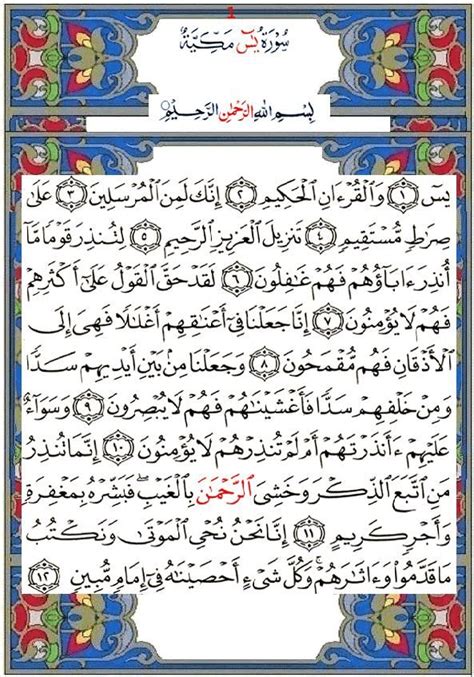 1
سُورَةُ يسٓ مَكِّيَّةٌ
بِسْمِ اللهِ الرَّحْمٰنِ الرَّحِيْمِ
يسٓ ١ وَٱلْقُرْءَانِ ٱلْحَكِيمِ ٢ إِنَّكَ لَمِنَ ٱلْمُرْسَلِينَ ٣ عَلَىٰ
صِرَٰطٍ مُّسْتَقِيمٍ ٤ تَنزِيلَ ٱلْعَزِيزِ ٱلرَّحِيمِ ٥ لِتُنذِرَ قَوْمًا مَّآ
أُنذِرَ ءَابَآؤُهُمْ فَهُمْ غَٰفِلُونَ ٦ لَقَدْ حَقَّ ٱلْقَوْلُ عَلَىٰٓ أَكْثَرِهِمْ
فَهُمْ لَا يُؤْمِنُونَ ٧ إِنَّا جَعَلْنَا فِىٓ أَعْنَٰقِهِمْ أَغْلَٰلًا فَهِىَ إِلَى
ٱلْأَذْقَانِ فَهُم مُّقْمَحُونَ ٨ وَجَعَلْنَا مِنۢ بَيْنِ أَيْدِيهِمْ سَدًّا
وَمِنْ خَلْفِهِمْ سَدًّا فَأَغْشَيْنَٰهُمْ فَهُمْ لَا يُبْصِرُونَ ٩ وَسَوَآءٌ
عَلَيْهِمْ ءَأَنذَرْتَهُمْ أَمْ لَمْ تُنذِرْهُمْ لَا يُؤْمِنُونَ ١٠ إِنَّمَا تُنذِرُ
مَنِ ٱتَّبَعَ ٱلذِّكْرَ وَخَشِىَ ٱلرَّحْمَٰنَ بِٱلْغَيْبِ ۖ فَبَشِّرْهُ بِمَغْفِرَةٍ
وَأَجْرٍ كَرِيمٍ ١١ إِنَّا نَحْنُ نُحْىِ ٱلْمَوْتَىٰ وَنَكْتُبُ
مَا قَدَّمُوا۟ وَءَاثَٰرَهُمْ ۚ وَكُلَّ شَىْءٍ أَحْصَيْنَٰهُ فِىٓ إِمَامٍ مُّبِينٍ ١٢